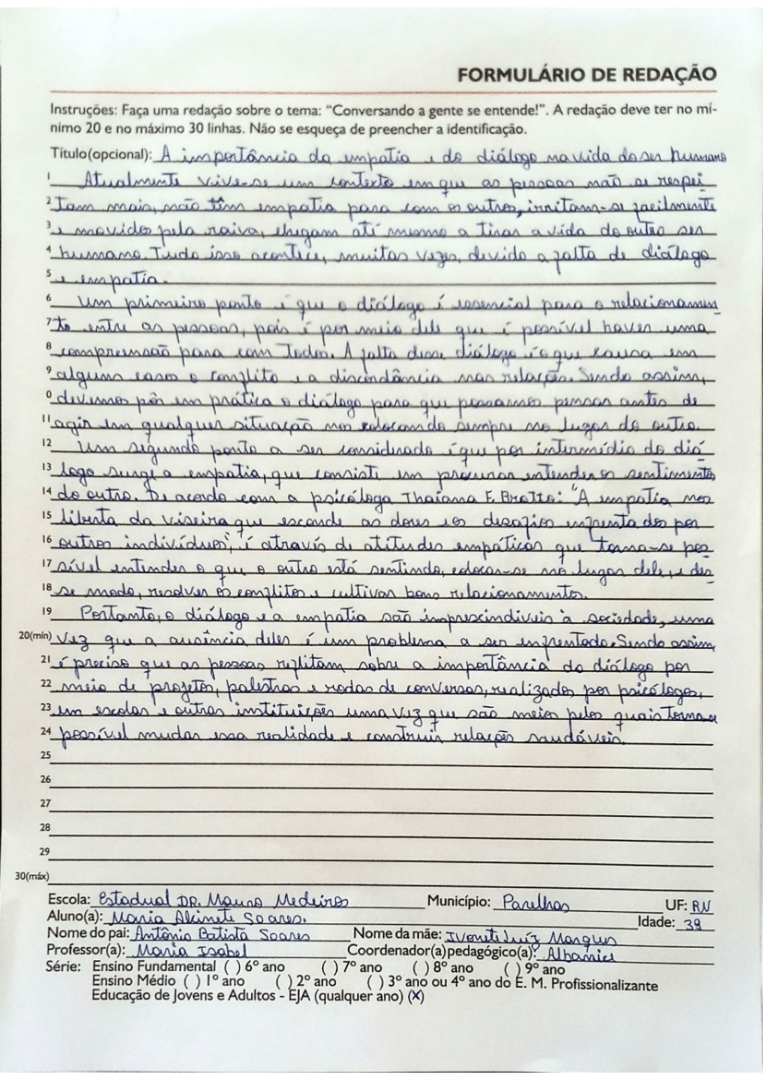 FORMULÁRIO DE REDAÇÃO
Instruções: Faça uma redação sobre o tema: "Conversando a gente se entende!". A redação deve ter no mí-
nimo 20 e no máximo 30 linhas. Não se esqueça de preencher a identificação.
Título(opcional): A importância da empatia e do diálogo na vida do ser humano
1 Atualmente vive-se um contexto em que as pessoas não se respei
2 tam mais, não têm empatia para com os outros, irritam-se facilmente
3 e movidos pela raiva, chegam até mesmo a tirar a vida do outro ser
4 humano. Tudo isso acontece, muitas vezes, devido a falta de diálogo
5 e empatia.
6 Um primeiro ponto é que o diálogo é essencial para o relacionamen
7 to entre as pessoas, pois é por meio dele que é possível haver uma
8 compreensão para com todos. A falta desse diálogo é o que causa em
9 alguns casos o conflito e a discordância nas relações. Sendo assim,
0 devemos pôr em prática o diálogo para que possamos pensar antes de
11 agir em qualquer situação nos colocando sempre no lugar do outro.
12 Um segundo ponto a ser considerado é que por intermédio do diá
13 logo surge a empatia, que consiste em procurar entender os sentimentos
14 do outro. De acordo com a psicóloga Thaiana F. Brotto: "A empatia nos
15 liberta da viseira que esconde as dores e os desafios enfrentados por
16 outros indivíduos", é através de atitudes empáticas que torna-se pos
17 sível entender o que o outro está sentindo, colocar-se no lugar dele, e des
18 se modo, resolver os conflitos e cultivar bons relacionamentos.
19 Portanto, o diálogo e a empatia são imprescindíveis à sociedade, uma
20(mín) vez que a ausência deles é um problema a ser enfrentado. Sendo assim,
21 é preciso que as pessoas reflitam sobre a importância do diálogo por
22 meio de projetos, palestras e rodas de conversas, realizados por psicólogos,
23 em escolas e outras instituições uma vez que são meios pelos quais torna-se
24 possível mudar essa realidade e construir relações saudáveis.
25
26
27
28
29
30(máx)
Escola: Estadual DR. Mauro Medeiros Município: Parelhas UF: RN
Aluno(a): Maria Alcinete Soares. Idade: 39
Nome do pai: Antônio Batista Soares Nome da mãe: Ivonete Luíz Marques
Professor(a): Maria Isabel Coordenador(a)pedagógico(a): Albanice
Série: Ensino Fundamental ( ) 6º ano ( ) 7º ano ( ) 8º ano ( ) 9º ano
Ensino Médio ( ) 1º ano ( ) 2º ano ( ) 3º ano ou 4º ano do E. M. Profissionalizante
Educação de Jovens e Adultos - EJA (qualquer ano) (X)